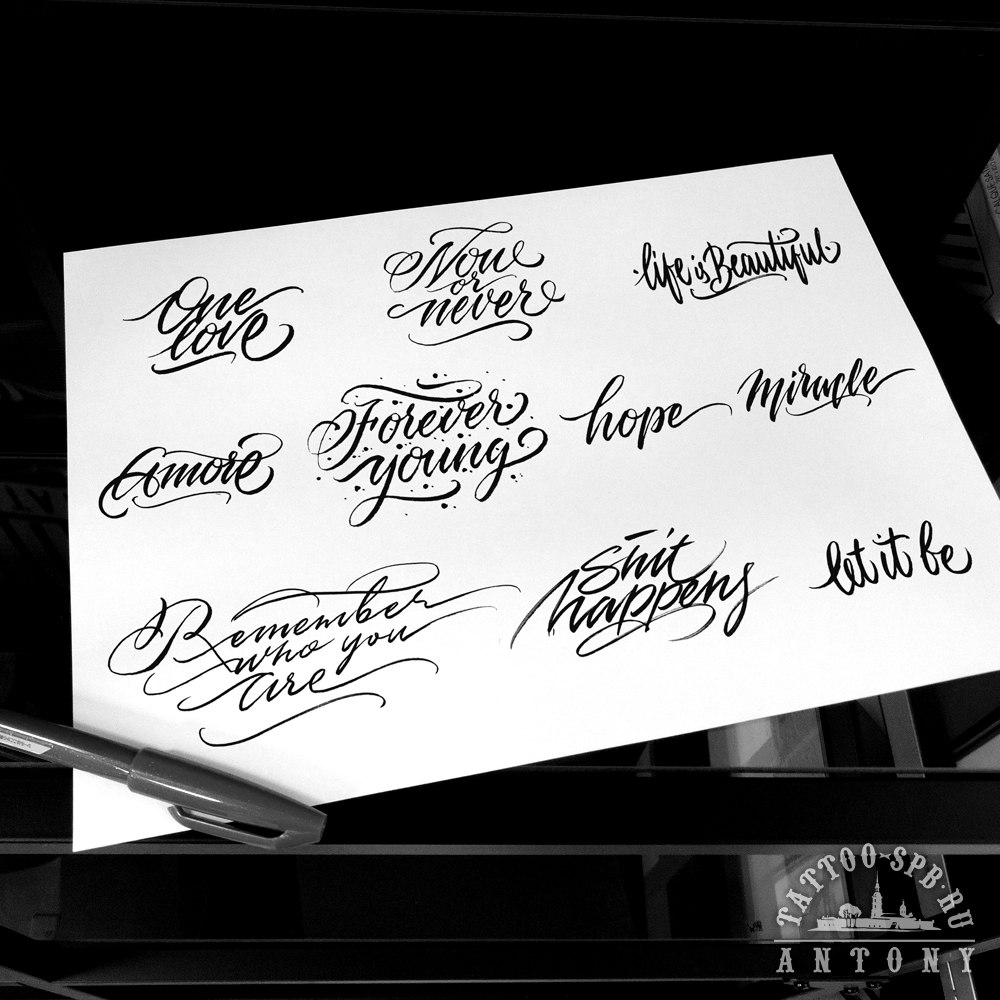 One
love
Now
or
never
life is Beautiful
Amore
Forever
young
hope
miracle
Remember
who you
are
shit
happens
let it be
TATTOO-SPB.RU
ANTONY